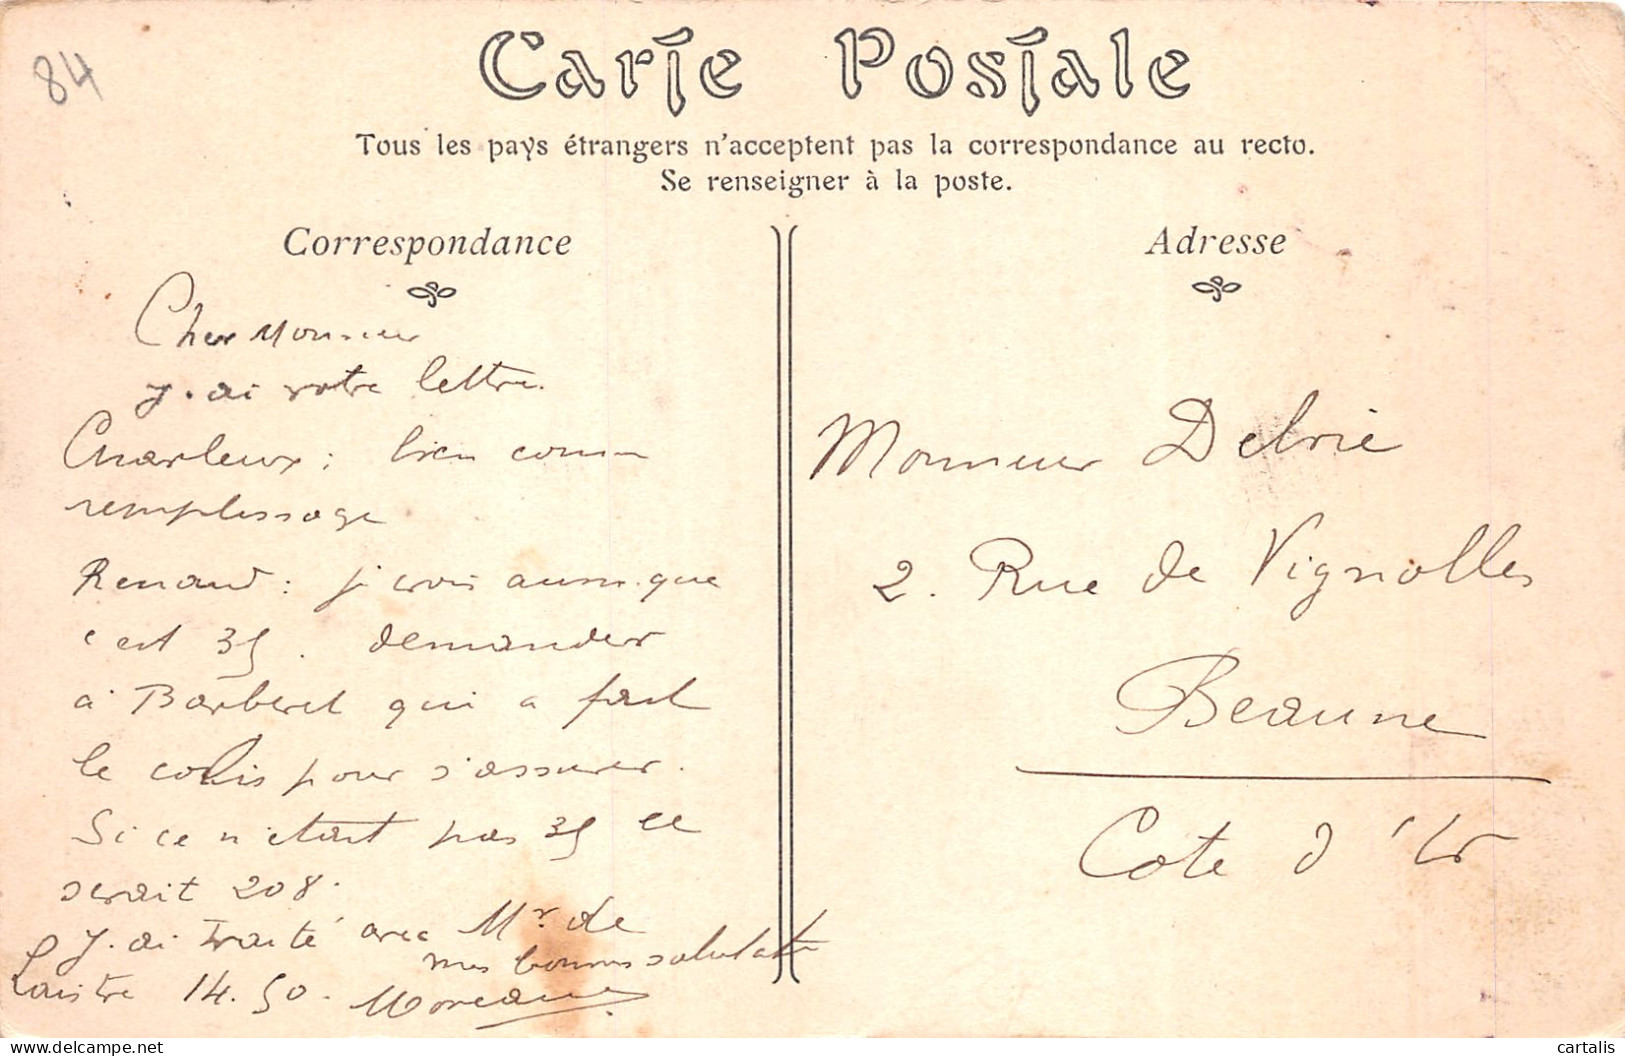 84
Carte Postale
Tous les pays étrangers n'acceptent pas la correspondance au recto.
Se renseigner à la poste.
Correspondance
Cher Monsieur
J'ai votre lettre.
Charleux : bien comm
remplissage
Renaud : je crois aussi que
c'est 35. demander
à Barberet qui a fait
le colis pour s'assurer.
Si ce n'était pas 35 ce
serait 208.
J'ai traité avec Mr. de
14.50.
mes bonnes salutat
Moreau
Adresse
Monsieur Delrie
2. Rue de Vignolles
Beaune
Cote d'Or
delcampe.net
cartalis